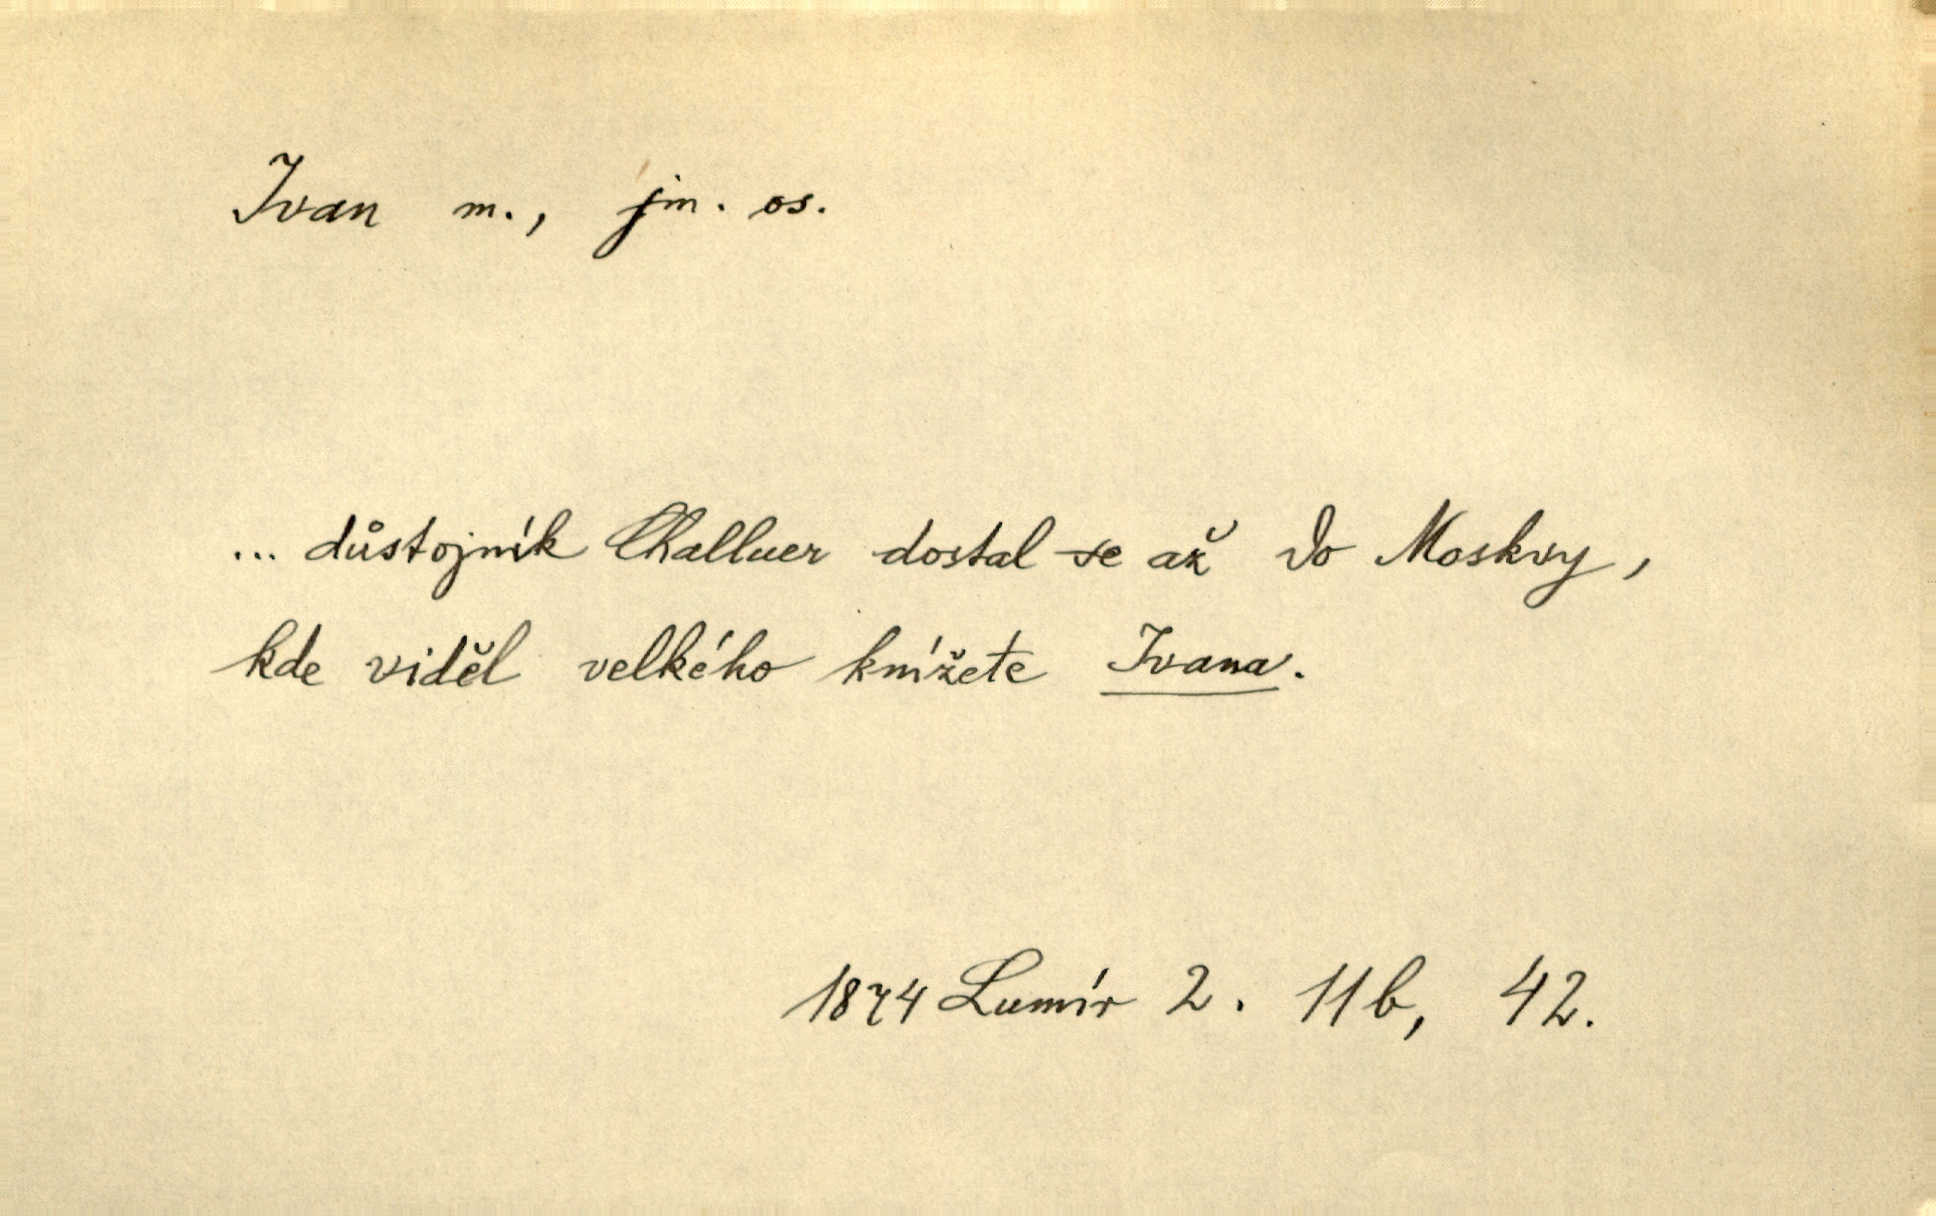 Ivan m., jm. os.
... důstojník Challuer dostal se až do Moskvy,
kde viděl velkého knížete Ivana.
1874 Lumír 2. 11b, 42.